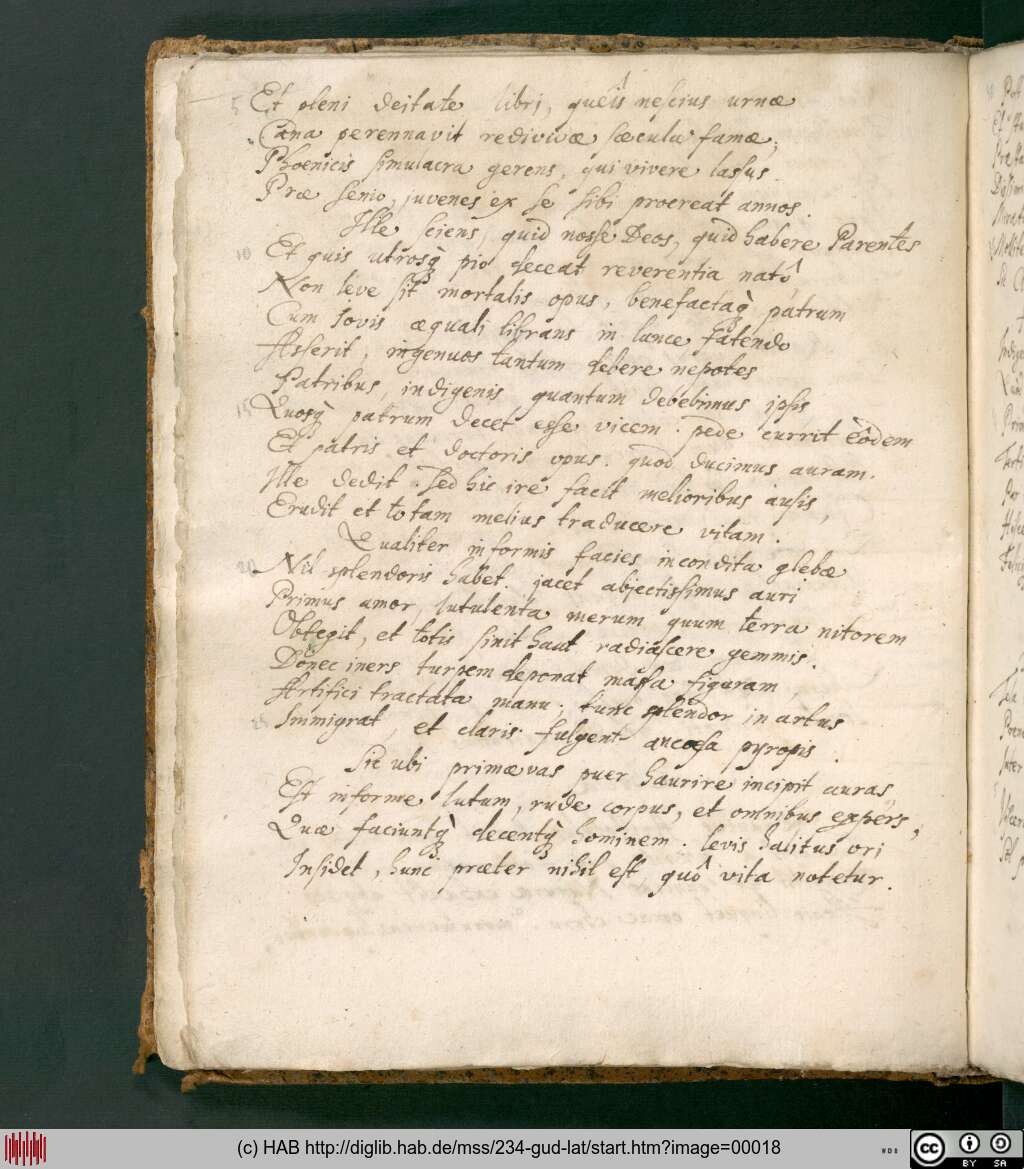 5 Et pleni deitate libri, queîs nescius urnæ
Cana perennavit redivivæ sæcula famæ;
Phoenicis simulacra gerens, qui vivere lassus
Præ senio, juvenes ex se sibi procreat annos.
Ille sciens, quid nosse Deos, quid habere Parentes
10 Et quis utrosq; pio deceat reverentia natô,
Non leve sit mortalis opus, benefactaq; patrum
Cum Iovis æquali librans in lance, fatendo
Asserit, ingenuos tantum debere nepotes
Patribus, indigenis quantum debebimus ipsis
15 Quosq; patrum decet esse vicem. pede currit eôdem
Et patris et doctoris opus. quod ducimus auram.
Ille dedit. sed hic ire facit melioribus ausis,
Erudit et totam melius traducere vitam.
Qualiter informis facies incondita glebæ
20 Nil splendoris habet. jacet abjectissimus auri
Primus amor, lutulenta merum quum terra nitorem
Obtegit, et totis sinit haut radiascere gemmis.
Donec iners turpem deponat massa figuram,
Artifici tractata manu; tunc splendor in artus
25 Immigrat, et claris fulgent pyropis.
Sic ubi primævas puer haurire incipit auras,
Est informe lutum, rude corpus, et omnibus expers,
Quæ faciuntq; decentq; hominem. levis halitus ori
Insidet, hunc præter nihil est, quô vita notetur.
(c) HAB http://diglib.hab.de/mss/234-gud-lat/start.htm?image=00018
cc BY SA